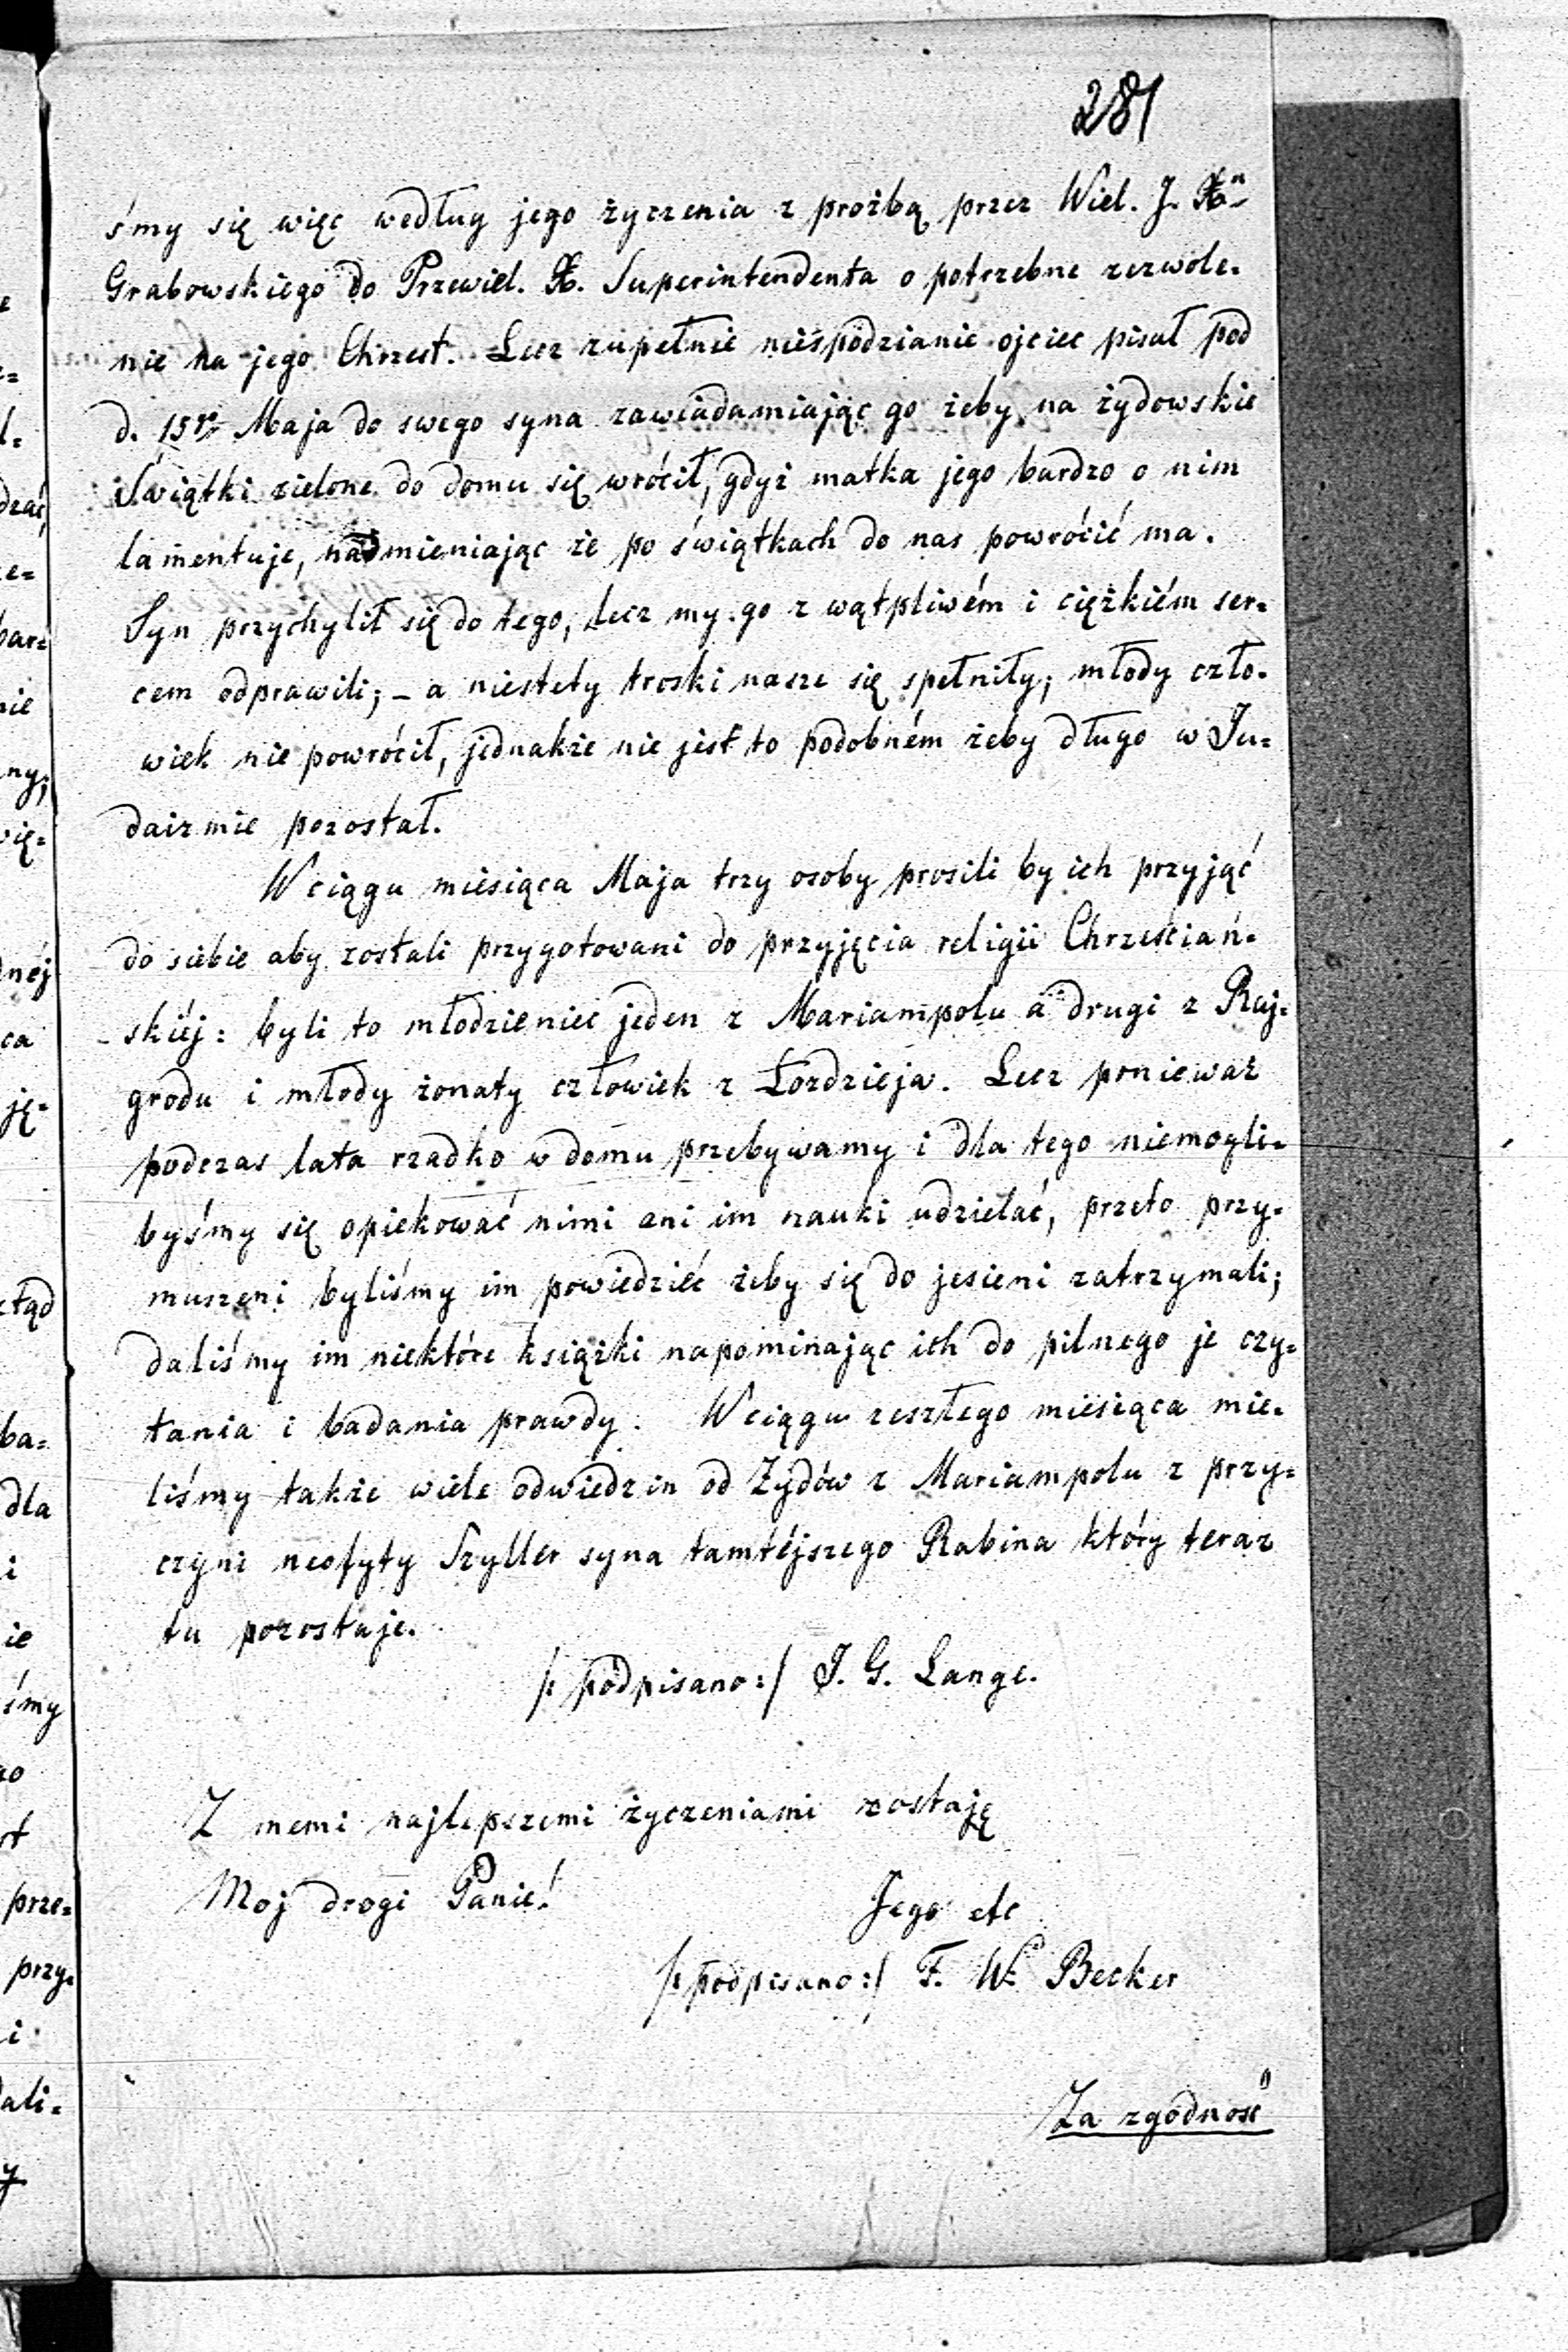 281
śmy się więc według jego życzenia z prożbą przez Wiel. J. X.
Grabowskiego do Przewiel. X. Superintendenta o potrzebne zezwole=
nie na jego Chrzest. Lecz zupełnie niespodzianie ojciec pisał pod
d. 15 Maja do swego syna zawiadamiając go żeby na żydowskie
Świątki zielone do domu się wrócił, gdyż matka jego bardzo o nim
lamentuje, nadmieniając że po świątkach do nas powrócić ma.
Syn przychylił się do tego, lecz my go z wątpliwém i ciężkiém ser=
cem odprawili; – a niestety troski nasze się spełniły; młody czło=
wiek nie powrócił, jednakże nie jest to podobném żeby długo w Ju=
daizmie pozostał.
W ciągu miesiąca Maja trzy osoby prosili by ich przyjąć
do siebie aby zostali przygotowani do przyjęcia religii Chrześciań=
skiéj: byli to młodzieniec jeden z Mariampolu a drugi z Raj=
grodu i młody żonaty człowiek z Łozdzieja. Lecz ponieważ
podczas lata rzadko w domu przebywamy i dla tego niemogli=
byśmy się opiekować nimi ani im nauki udzielać, przeto przy=
muszeni byliśmy im powiedzieć żeby się do jesieni zatrzymali;
daliśmy im niektóre książki napominając ich do pilnego je czy=
tania i badania prawdy. W ciągu zeszłego miesiąca mie=
liśmy także wiele odwiedzin od Żydów z Mariampolu z przy=
czyni neofyty Szyller syna tamtéjszego Rabina który teraz
tu pozostaje.
/: podpisano :/ J. G. Lange.
Z memi najlepszemi życzeniami zostaję
Moj drogi Panie!
Jego etc
/: podpisano :/ F. W. Becker
Za zgodność